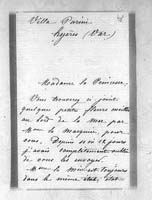 Villa Parini
Hyères (Var.)
Madame la Princesse,
Vous trouverez ci joint
quelques petites fleurs
au bord de la mer par
Mme la Marquise pour
vous. Depuis 10 ou 12 jours
j'avais complètement oublié
de vous les envoyer.
Mme la est toujours
dans le même état, état